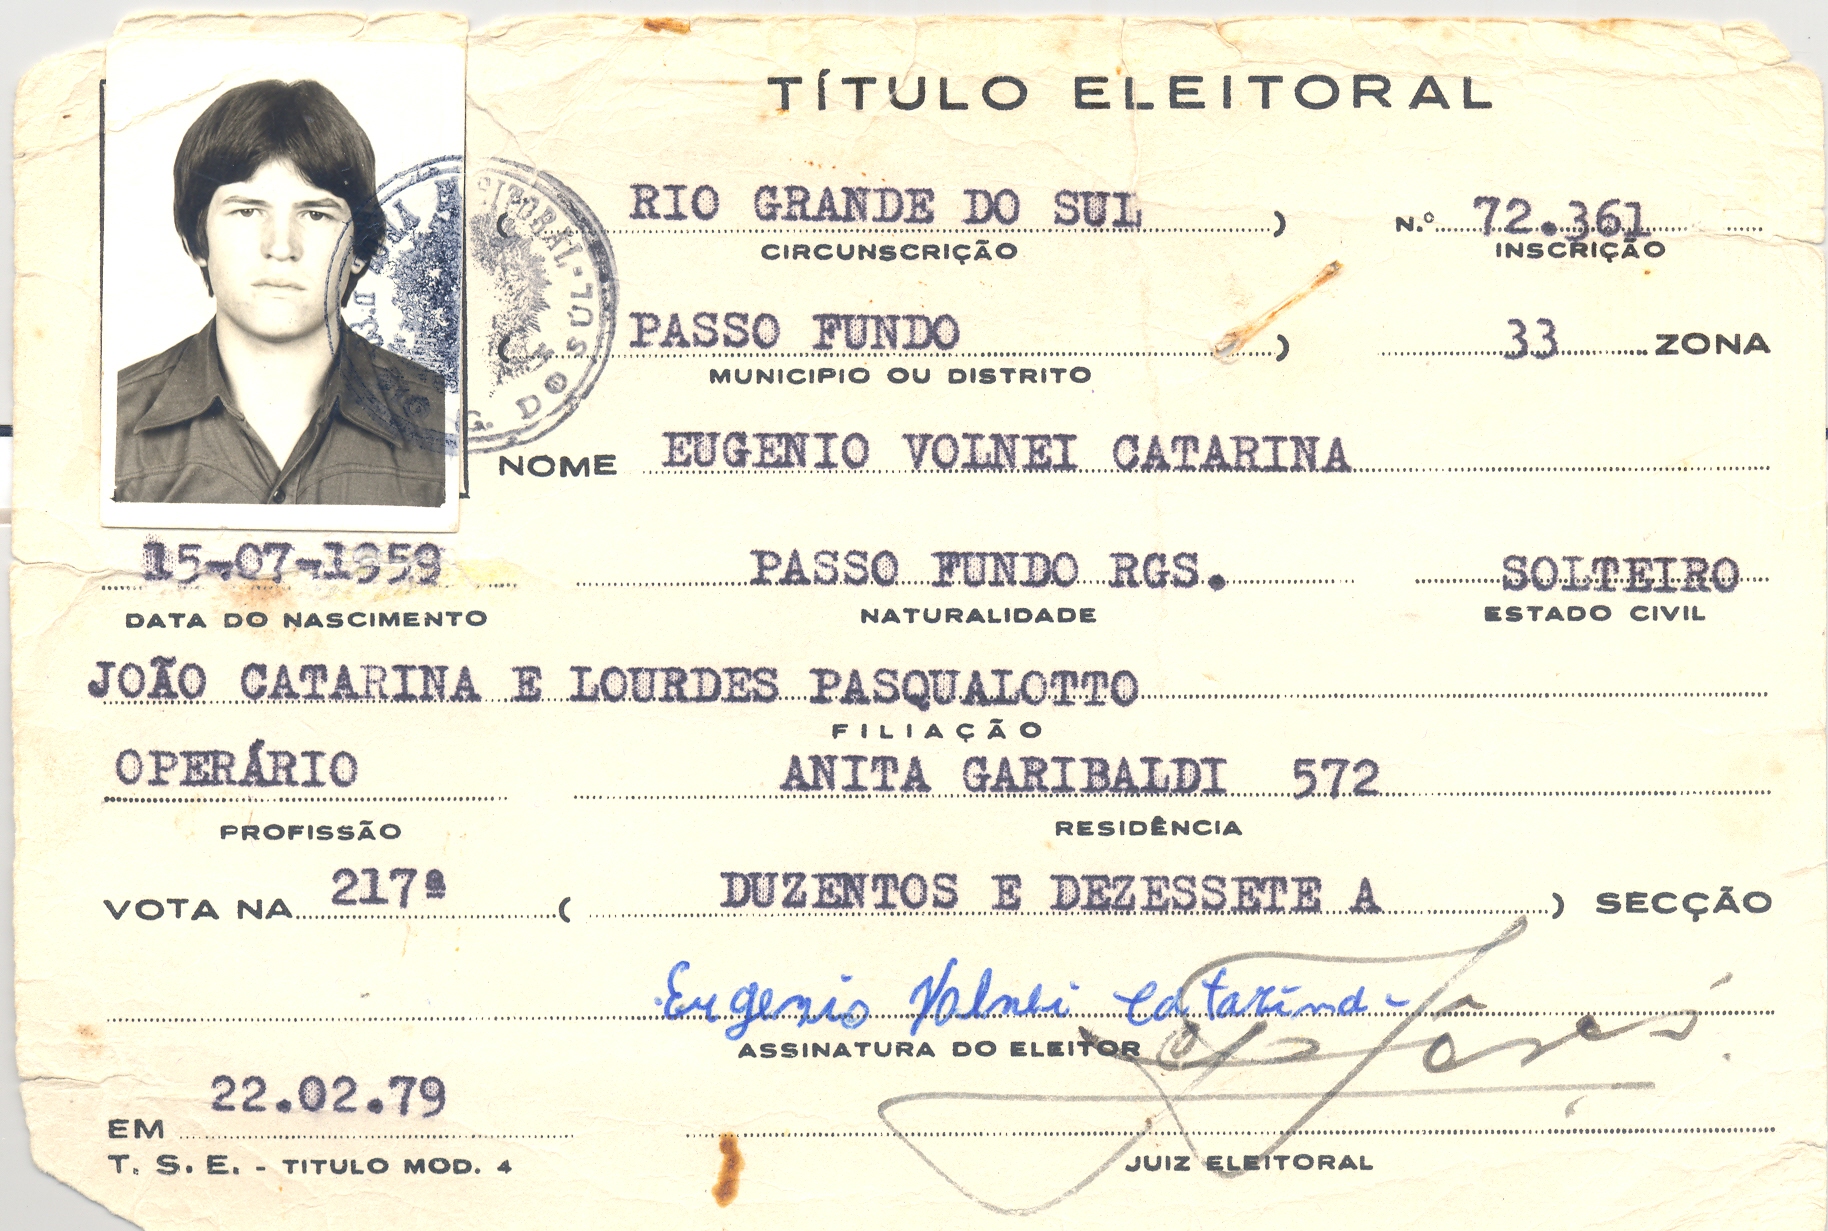 TÍTULO ELEITORAL
( RIO GRANDE DO SUL ) N.º 72.361
CIRCUNSCRIÇÃO INSCRIÇÃO
( PASSO FUNDO ) 33 ZONA
MUNICIPIO OU DISTRITO
NOME EUGENIO VOLNEI CATARINA
15-07-1959 PASSO FUNDO RGS. SOLTEIRO
DATA DO NASCIMENTO NATURALIDADE ESTADO CIVIL
JOÃO CATARINA E LOURDES PASQUALOTTO
FILIAÇÃO
OPERÁRIO ANITA GARIBALDI 572
PROFISSÃO RESIDÊNCIA
VOTA NA 217ª ( DUZENTOS E DEZESSETE A ) SECÇÃO
Eugenio Volnei Catarina
ASSINATURA DO ELEITOR
22.02.79
EM
T. S. E. - TITULO MOD. 4 JUIZ ELEITORAL